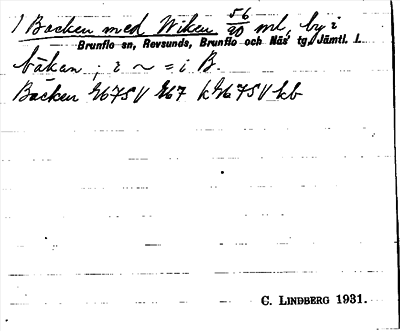 1 Backen med Wiken 56/90 ml, by i
Brunflo sn, Revsunds, Brunflo och Näs tg, Jämtl. l.
båkan ; i ~ = i B.
Backen 2/675 V 2/67 k 2/675 V kb
C. LINDBERG 1931.